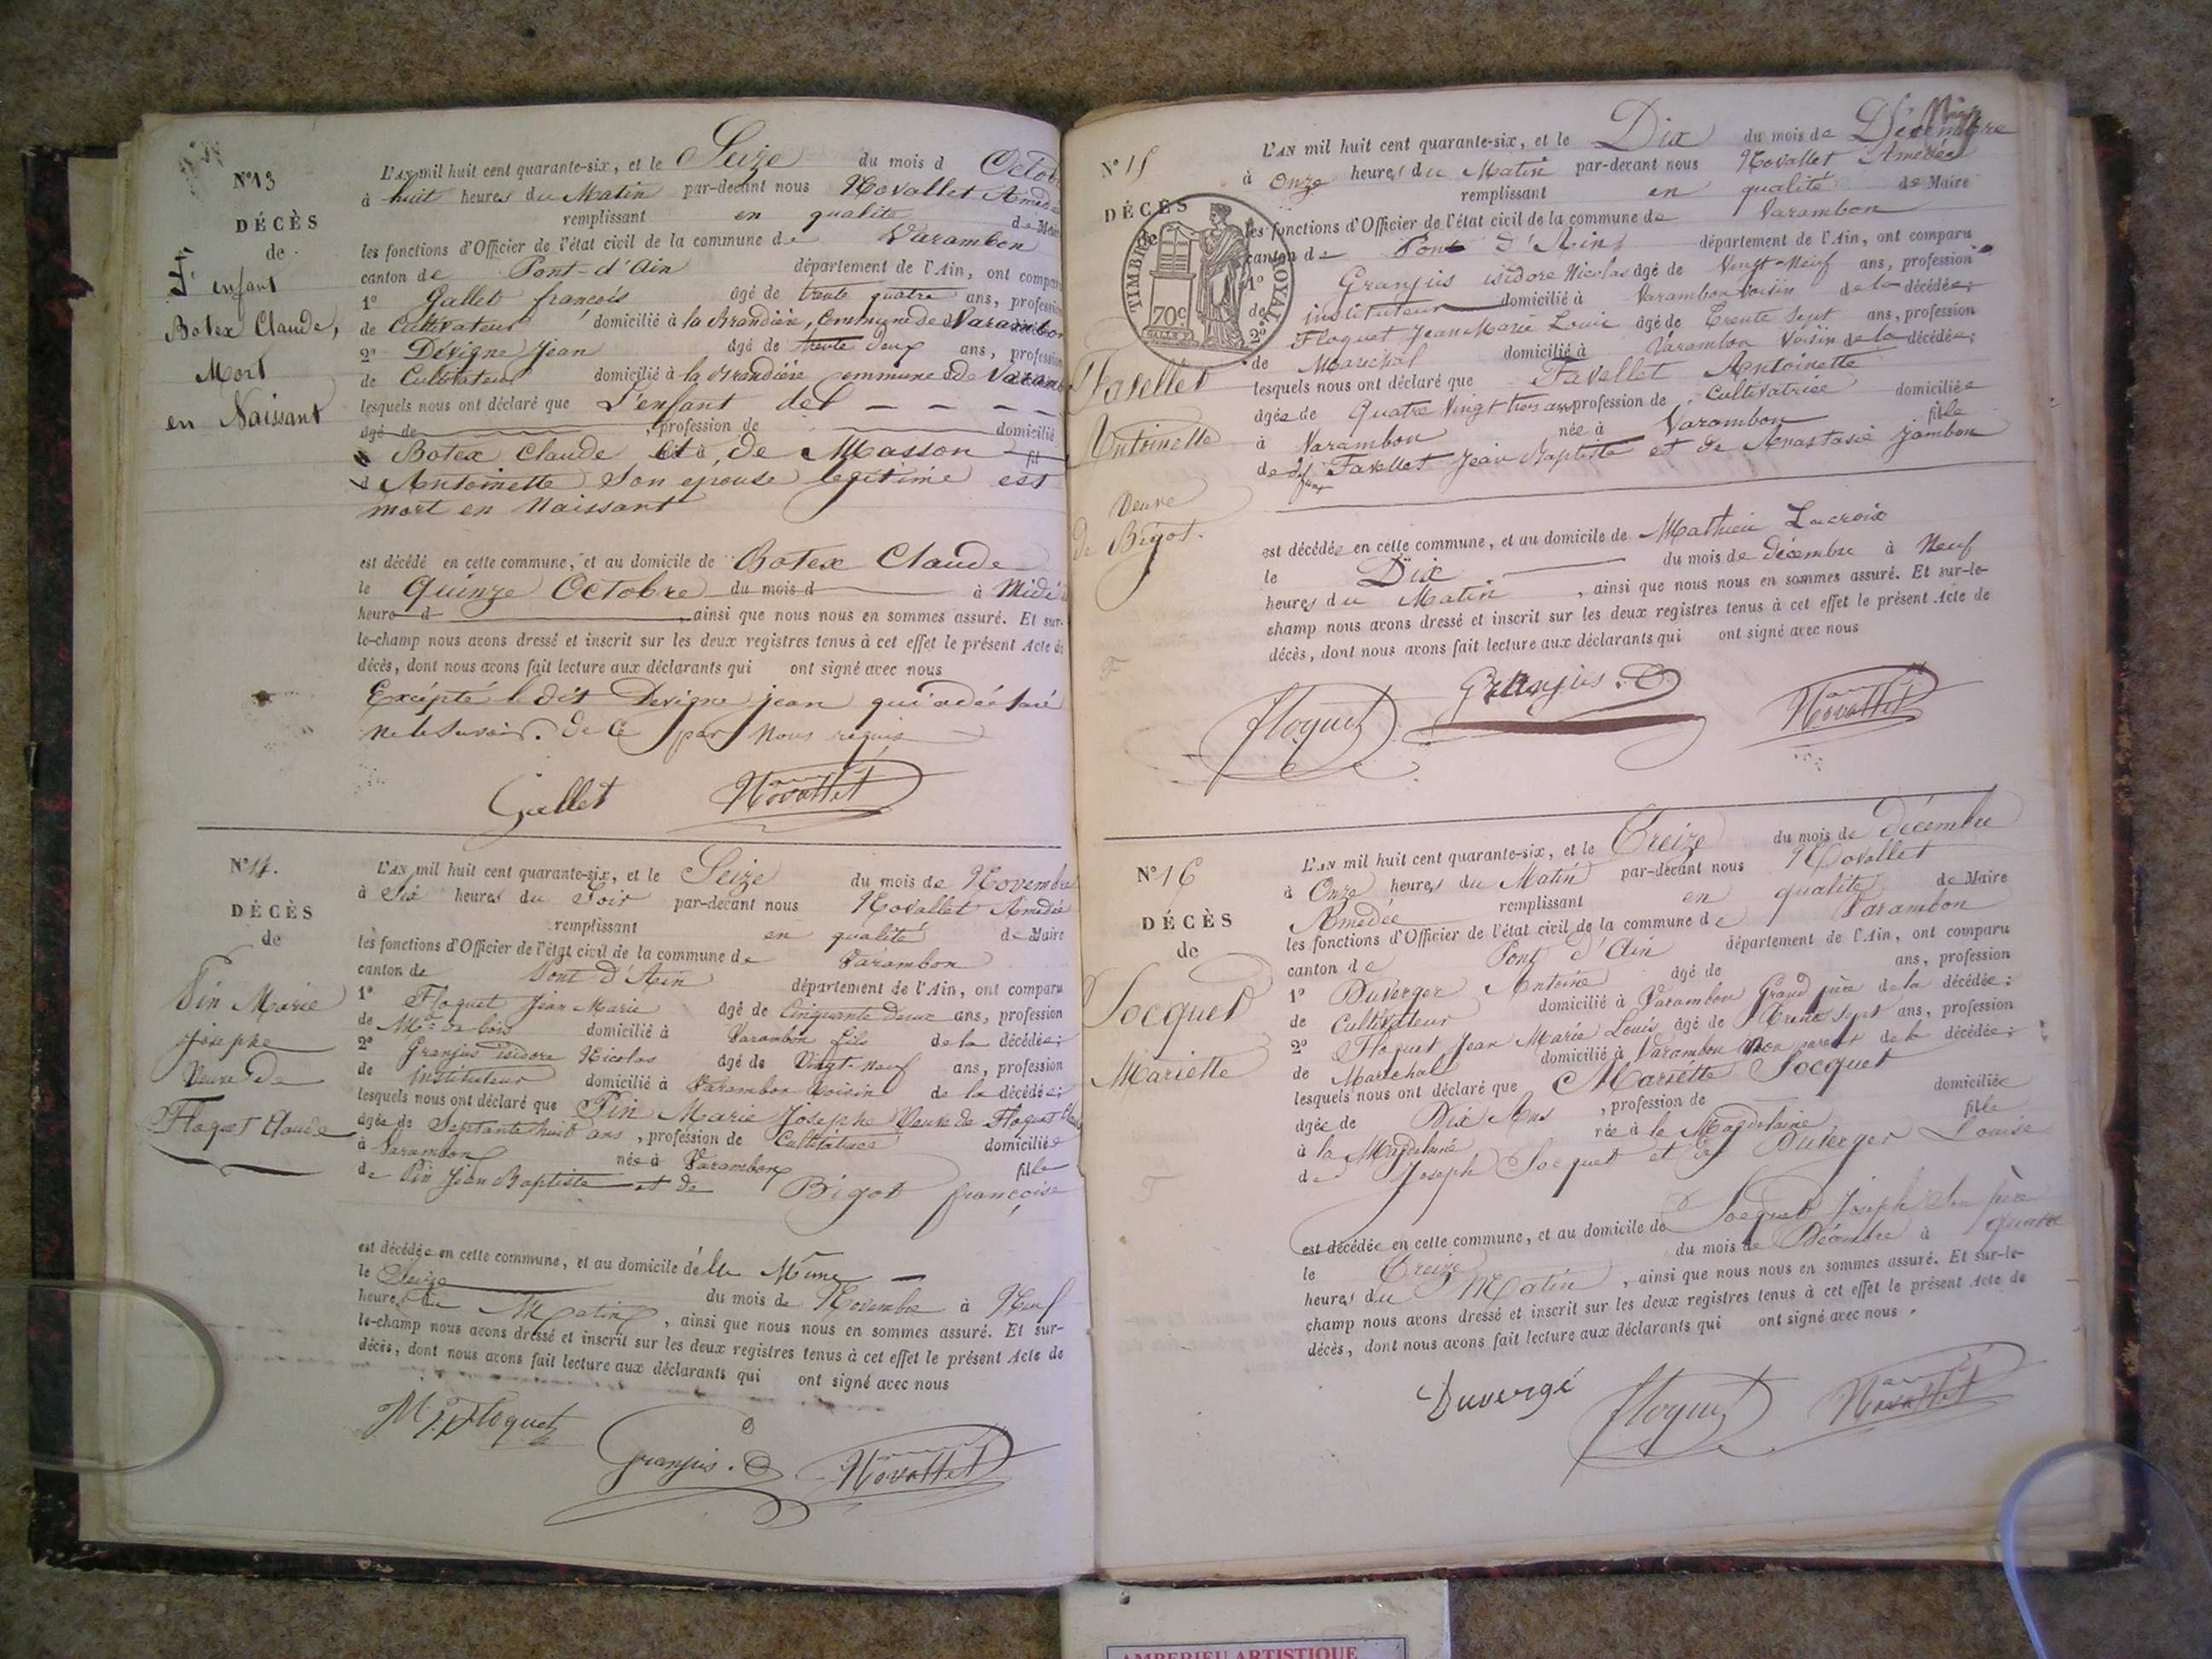 N° 13
DÉCÈS
de
L'enfant
Botex Claude,
Mort
en Naissant
L'AN mil huit cent quarante-six, et le Seize du mois d Octob
à huit heures du Matin par-devant nous Novallet Amédé
remplissant en qualité de Mai
les fonctions d'Officier de l'état civil de la commune de Varambon
canton de Pont-d'Ain département de l'Ain, ont compar
1° Gallet françois âgé de trente quatre ans, profession
de Cultivateur domicilié à la Brandière, Commune de Varambon
2° Devigne Jean âgé de trente deux ans, profession
de Cultivateur domicilié à la Brandière Commune de Varamb
lesquels nous ont déclaré que L'enfant de
âgé de , profession de domicilié
Botex Claude et de Masson fil
Antoinette Son épouse légitime est
mort en Naissant
est décédé en cette commune, et au domicile de Botex Claude
le quinze Octobre du mois d à Midi
heure d , ainsi que nous nous en sommes assuré. Et sur-
le-champ nous avons dressé et inscrit sur les deux registres tenus à cet effet le présent Acte de
décès, dont nous avons fait lecture aux déclarants qui ont signé avec nous
Excépté le dit Devigne jean qui a déclaré
ne le Savoir. de ce par Nous requis
Gallet Novallet
N° 14.
DÉCÈS
de
Pin Marie
josephe
Veuve De
Floquet Claude
L'AN mil huit cent quarante-six, et le Seize du mois de Novembre
à Six heures du Soir par-devant nous Novallet Amédée
remplissant en qualité de Maire
les fonctions d'Officier de l'état civil de la commune de Varambon
canton de Pont D'Ain département de l'Ain, ont comparu
1° Floquet Jean Marie âgé de Cinquante Deux ans, profession
de Md de bois domicilié à Varambon fils de la décédée;
2° Granjus isidore Nicolas âgé de Vingt-neuf ans, profession
de instituteur domicilié à Varambon Voisin de la décédée;
lesquels nous ont déclaré que Pin Marie Josephe Veuve de Floquet
âgée de Septante huit ans, profession de Cultivatrice domiciliée
à Varambon née à Varambon fille
de Pin Jean Baptiste et de Bigot françoise
est décédée en cette commune, et au domicile d'elle Même
le Seize du mois de Novembre à Neuf
heures du Matin, ainsi que nous nous en sommes assuré. Et sur-
le-champ nous avons dressé et inscrit sur les deux registres tenus à cet effet le présent Acte de
décès, dont nous avons fait lecture aux déclarants qui ont signé avec nous
Floquet Granjus Novallet
N° 15
DÉCÈS
de
TIMBRE ROYAL
70c
Favellet
Antoinette
Veuve
de Bigot.
L'AN mil huit cent quarante-six, et le Dix du mois de Décembre
à Onze heures du Matin par-devant nous Novallet Amédée
remplissant en qualité de Maire
les fonctions d'Officier de l'état civil de la commune de Varambon
canton de Pont d'Ain département de l'Ain, ont comparu
1° Granjus isidore Nicolas âgé de Vingt-Neuf ans, profession
de instituteur domicilié à Varambon Voisin de la décédée;
2° Floquet Jean Marie Louis âgé de Trente Sept ans, profession
de Maréchal domicilié à Varambon Voisin de la décédée;
lesquels nous ont déclaré que Favellet Antoinette
âgée de Quatre Vingt trois ans profession de Cultivatrice domiciliée
à Varambon née à Varambon fille
de Favellet Jean Baptiste et de Anastasie Jambon
est décédée en cette commune, et au domicile de Mathieu Lacroix
le Dix du mois de décembre à Neuf
heures du Matin, ainsi que nous nous en sommes assuré. Et sur-le-
champ nous avons dressé et inscrit sur les deux registres tenus à cet effet le présent Acte de
décès, dont nous avons fait lecture aux déclarants qui ont signé avec nous
Floquet Granjus Novallet
N° 16
DÉCÈS
de
Socquet
Mariette
L'AN mil huit cent quarante-six, et le Treize du mois de décembre
à Onze heures du Matin par-devant nous Novallet
Amédée remplissant en qualité de Maire
les fonctions d'Officier de l'état civil de la commune de Varambon
canton de Pont d'Ain département de l'Ain, ont comparu
1° Duverger Antoine âgé de ans, profession
de Cultivateur domicilié à Varambon Grand père de la décédée;
2° Floquet Jean Marie Louis âgé de Trente Sept ans, profession
de Maréchal domicilié à Varambon Non parent de la décédée;
lesquels nous ont déclaré que Mariette Socquet
âgée de Dix Ans, profession de domiciliée
à la Magdelaine née à la Magdelaine fille
de Joseph Socquet et de Duverger Louise
est décédée en cette commune, et au domicile de Socquet Joseph Son père
le Treize du mois de Décembre à quatre
heures du Matin, ainsi que nous nous en sommes assuré. Et sur-le-
champ nous avons dressé et inscrit sur les deux registres tenus à cet effet le présent Acte de
décès, dont nous avons fait lecture aux déclarants qui ont signé avec nous.
Duvergé Floquet Novallet
AMBERIEU ARTISTIQUE